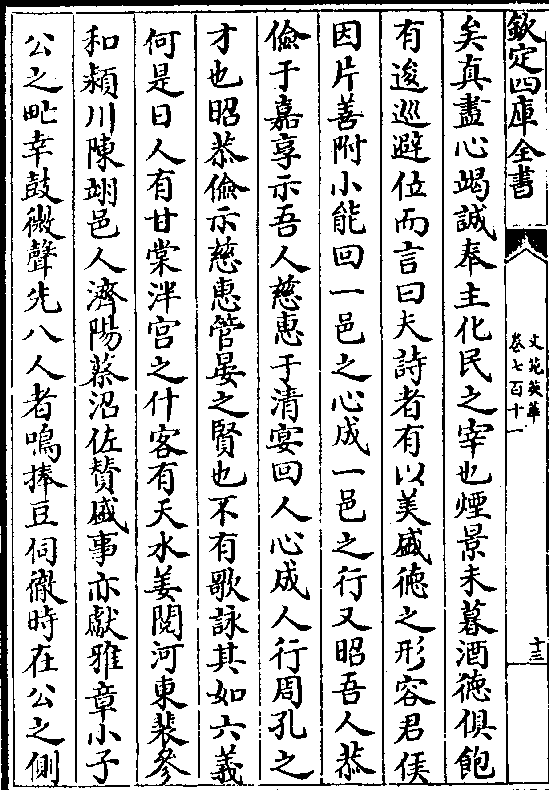 欽定四庫全書
文苑英華
卷七百十一
十三
矣真盡心竭誠奉主化民之宰也煙景未暮酒徳俱飽
有逡巡避位而言曰夫詩者有以美盛徳之形容君侯
因片善附小能回一邑之心成一邑之行又昭吾人恭
儉于嘉享示吾人慈惠于清宴回人心成人行周孔之
才也昭恭儉示慈惠管晏之賢也不有歌詠其如六義
何是日人有甘棠泮宫之什客有天水姜閱河東裴參
和潁川陳翊邑人濟陽蔡沼佐賛盛事亦獻雅章小子
公之甿幸鼓微聲先八人者鳴捧豆伺徹時在公之側